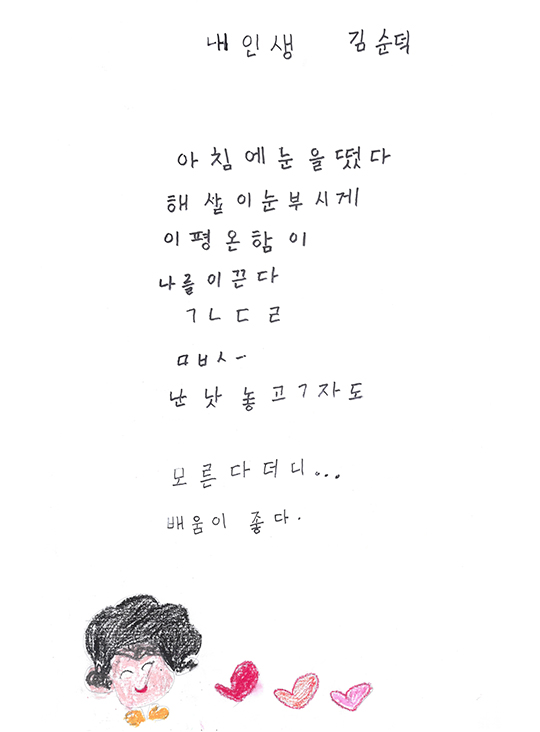 내 인생 김순덕
아침에 눈을 떴다
해살이 눈부시게
이 평온함이
나를 이끈다
ㄱ ㄴ ㄷ ㄹ
ㅁ ㅂ ㅅ -
난 낫 놓고 ㄱ자도
모른다더니...
배움이 좋다.